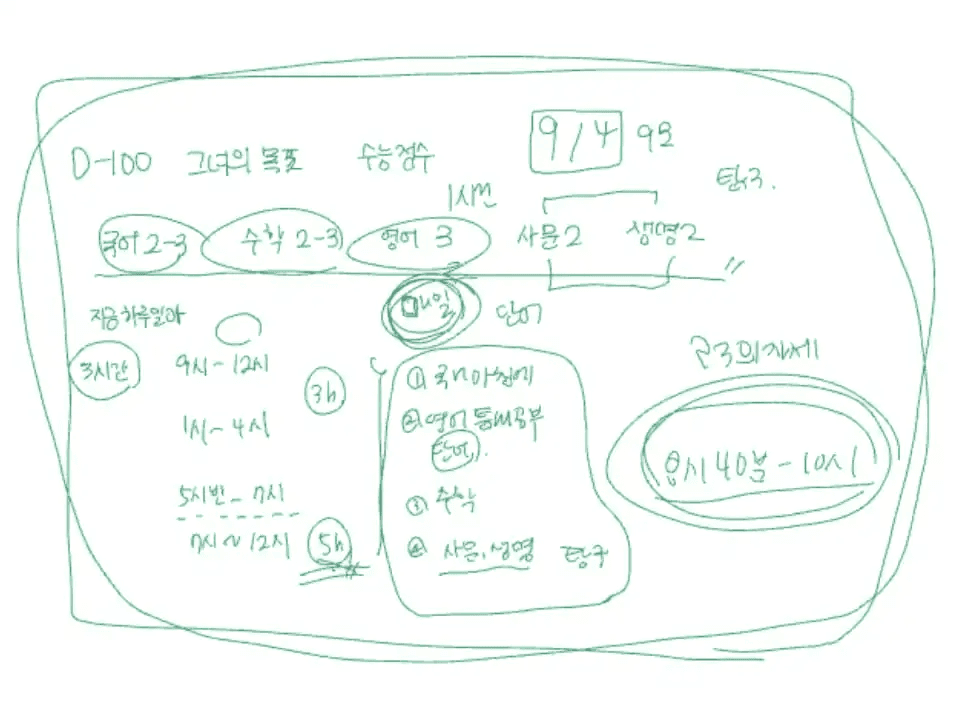 9/4 9모
D-100 그녀의 목표 수능점수
탐구.
1시반
국어 2-3 수학 2-3 영어 3 사문2 생명2
매일 단어
지금 하루일과
3시간 9시~12시
3h
1시~4시
5시반~7시
7시~12시 5h
① 국어 아침에
② 영어 틈새공부
단어.
③ 수학
④ 사문, 생명 탐구
고3의 자세
8시 40분 - 10시